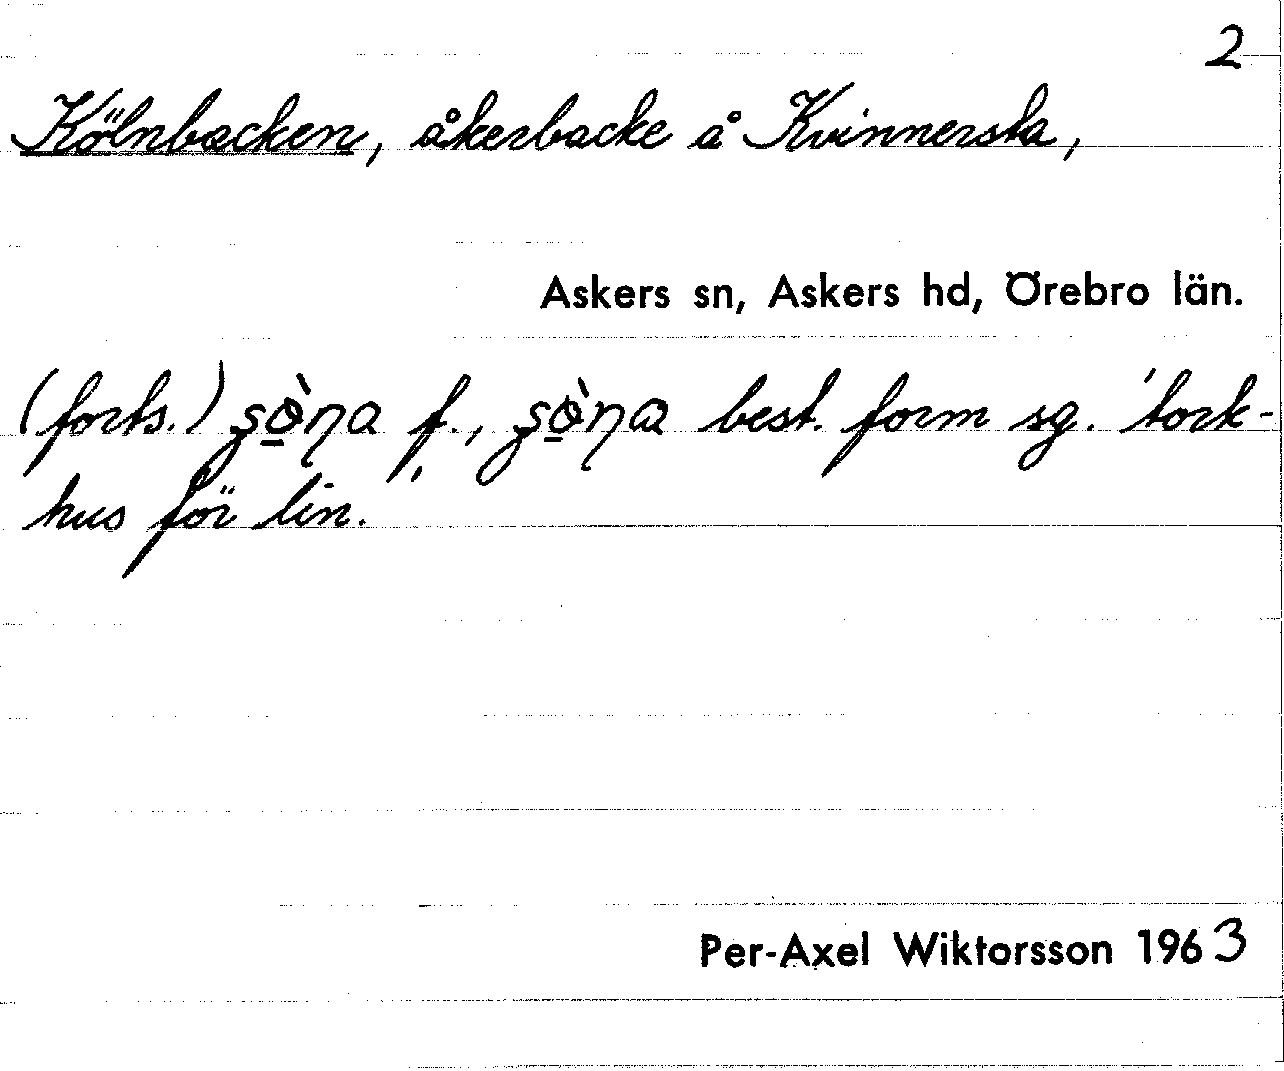 2
Kölnbacken, åkerbacke å Kvinnersta,
Askers sn, Askers hd, Örebro län.
(forts.) f., best. form sg. 'tork-
hus för lin.'
Per-Axel Wiktorsson 1963